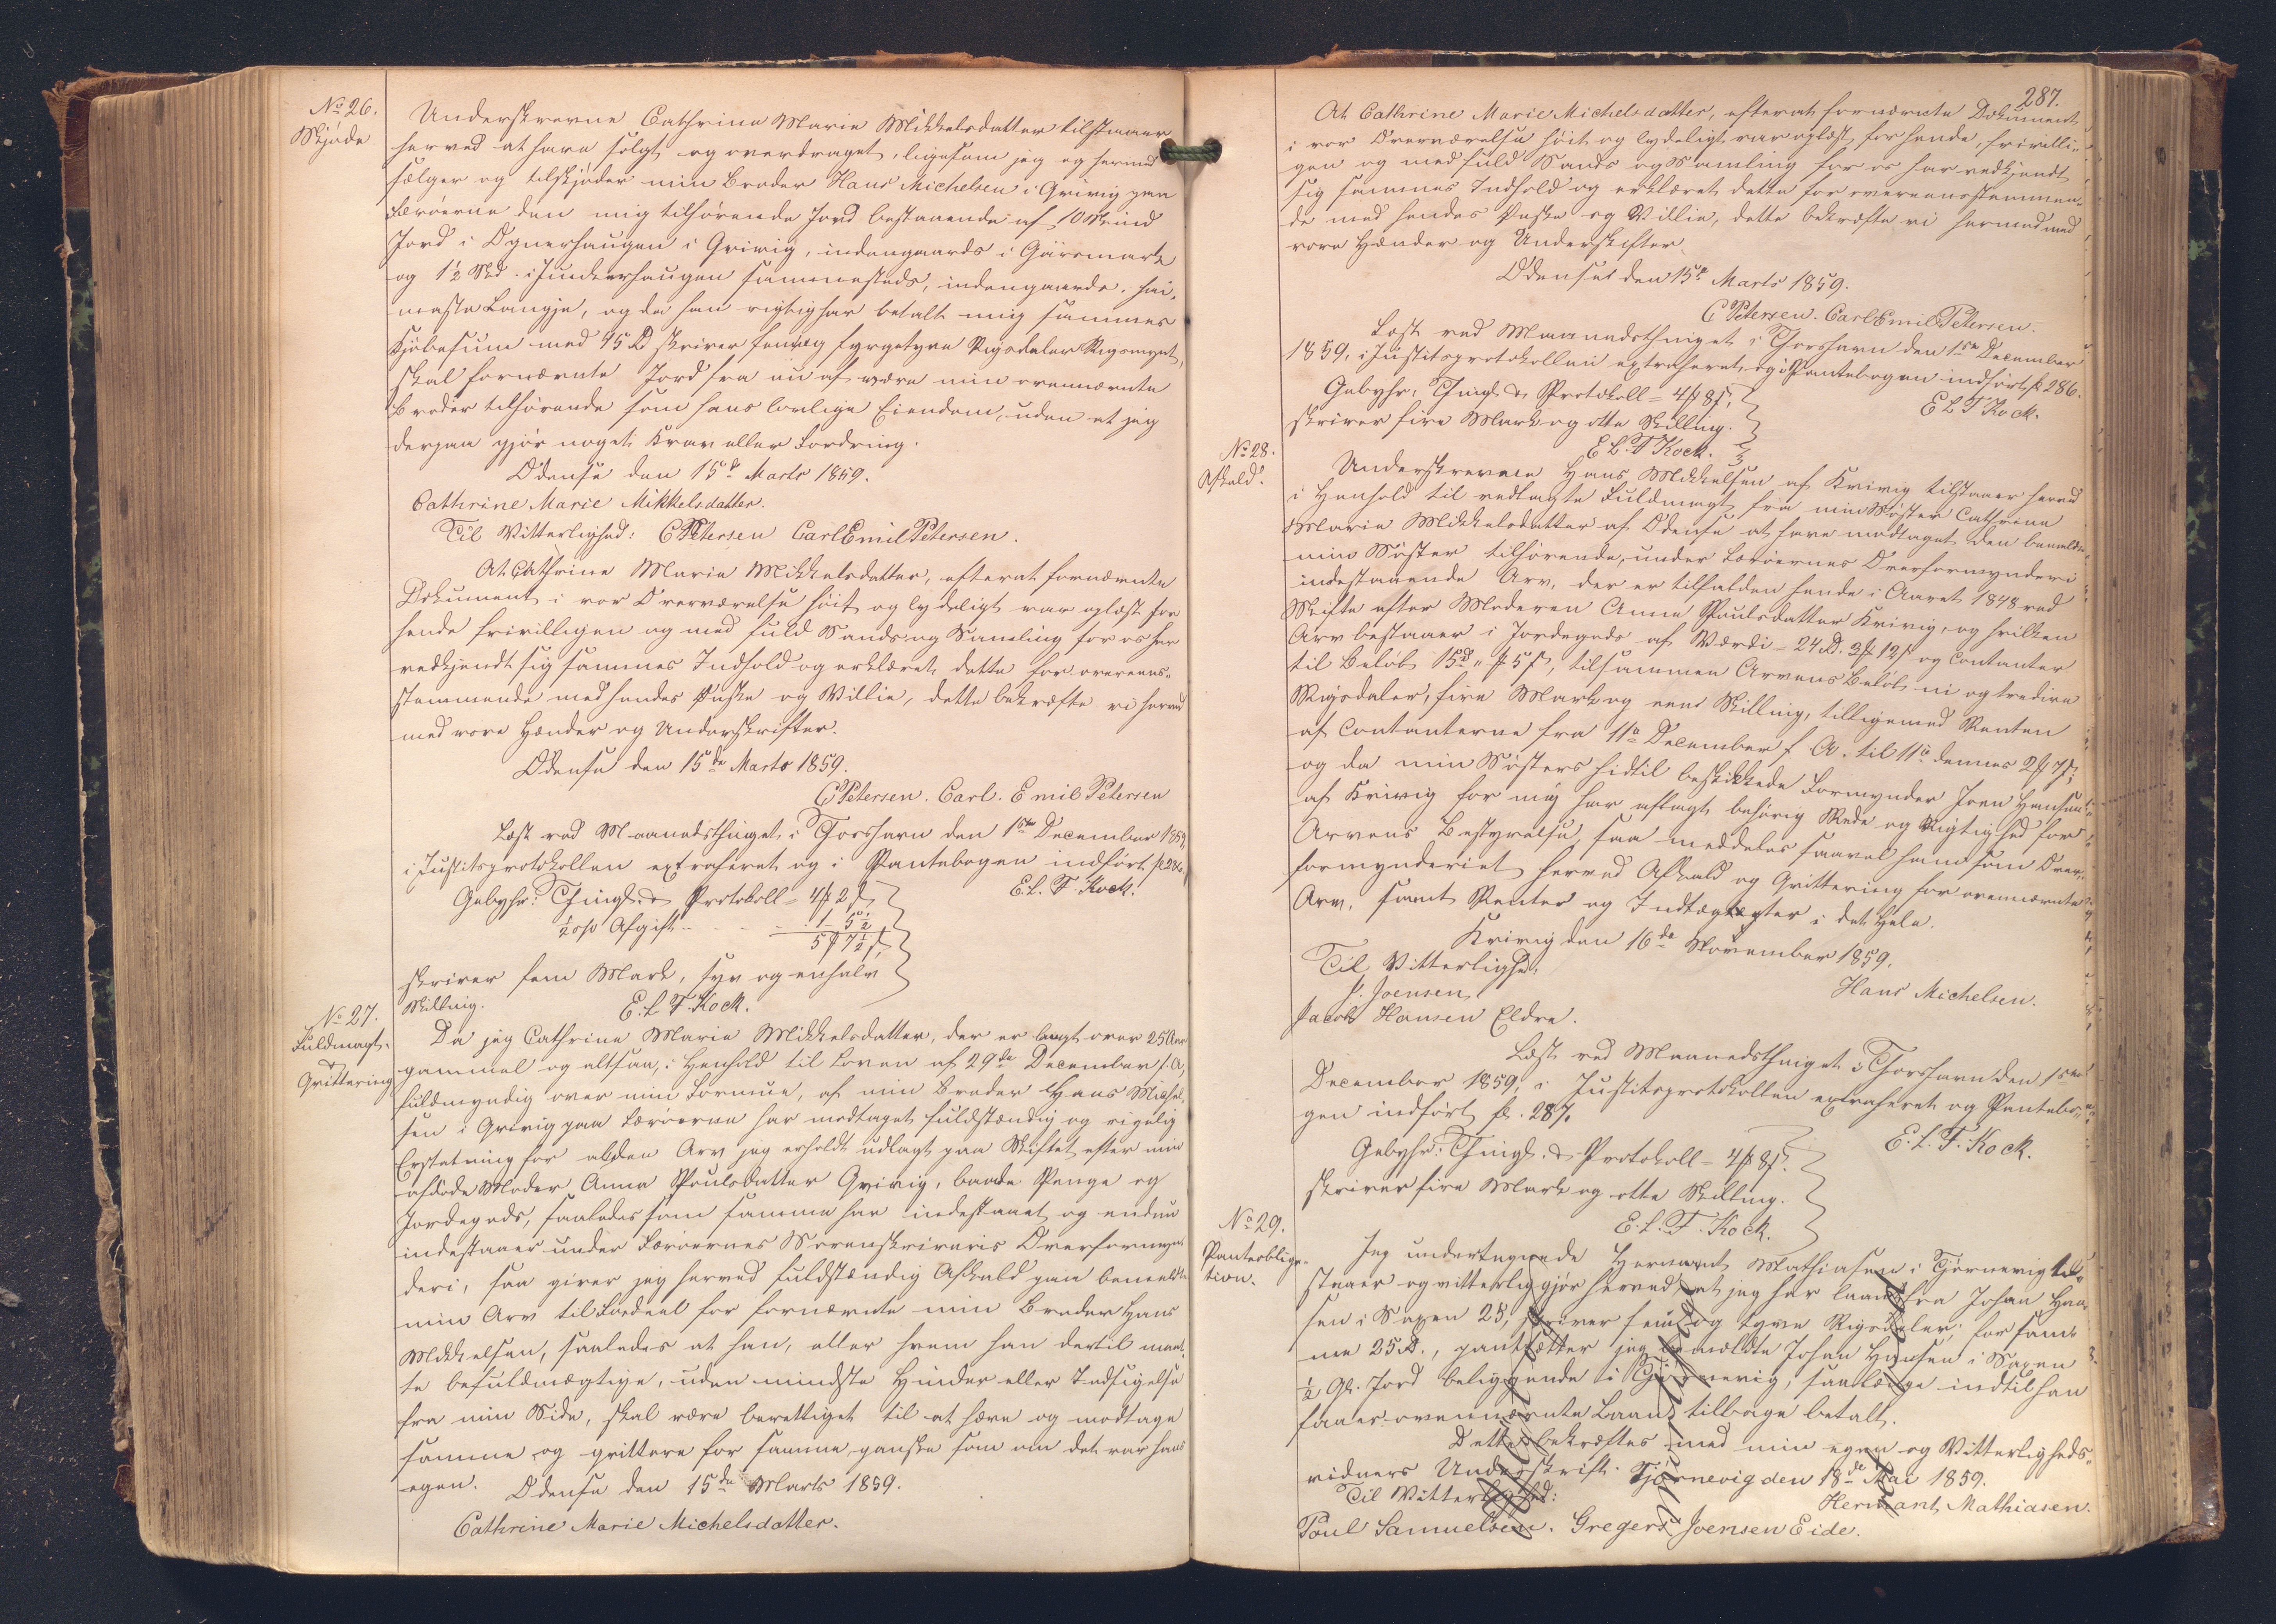 No 26.
Skjöde
Underskrevne Cathrine Marie Mikkelsdatter tilstaaer
herved at have solgt og overdraget, ligesom jeg og herved
sælger og tilskjøder min Broder Hans Michelsen i Qvivig paa
Færöerne den mig tilhørende Jord bestaaende af 10 Skind
Jord i Ognerhaugen i Qvivig, indengaards i Gärsmark
og 1½ Skd. i Junkerhaugen sammesteds, indengaards. hei-
maste Langje, og da han rigtig har betalt mig sammes
Kjöbesum med 45 Rd skriver fem og fyrgetyve Rigsdaler Rigsmynt,
skal fornævnte Jord fra nu af være min ovennævnte
Broder tilhörende som hans lovlige Eiendom, uden at jeg
derpaa gjör noget Krav eller Fordring.
Odense den 15de Marts 1859.
Cathrine Marie Mikkelsdatter.
Til Vitterlighed: C Petersen Carl Emil Petersen.
At Cathrine Marie Mikkelsdatter, efterat fornævnte
Dokument i vor Overværelse höit og lydeligt var oplæst for
hende frivilligen og med fuld Sands og Samling for os har
vedkjendt sig sammes Indhold og erklæret dette for overeens-
stemmende med hendes Ønske og Villie, dette bekræfte vi herved
med vore Hænder og Underskrifter.
Odense den 15de Marts 1859.
C Petersen. Carl. Emil Petersen
Læst ved Maanedsthinget i Thorshavn den 1ste December 1859,
i Justitsprotokollen extraheret og i Pantebogen indfört fl 286.
E. L. F. Kock.
Gebyhr: Thingl. & Protokoll = 4 ß 2 s
½ o/o Afgift . . . . 1 - 5½
5 ß 7½ s
skriver fem Mark, syv og en halv
Skilling.
E. L. F. Kock.
No 27.
Fuldmagt
&
Qvittering
Da jeg Cathrine Marie Mikkelsdatter, der er langt over 25 Aar
gammel og altsaa, i Henhold til Loven af 29de December f. A,
fuldmyndig over min Formue, af min Broder Hans Michel-
sen i Qvivig paa Færöerne har modtaget fuldstændig og rigelig
Erstatning for al den Arv jeg erholdt udlagt paa Skiftet efter min
afdöde Moder Anna Poulsdatter Qvivig, baade Penge og
Jordegods, saaledes som samme har indestaaet og endnu
indestaaer under Færöernes Sorenskriveris Overformyn-
deri, saa giver jeg herved fuldstændig Afkald paa bemeldte
min Arv til Fordeel for fornævnte min Broder Hans
Mikkelsen, saaledes at han, eller hvem han dertil maat-
te befuldmægtige, uden mindste Hinder eller Indsigelse
fra min Side, skal være berettiget til at hæve og modtage
samme og qvittere for samme, ganske som om det var hans
egen. Odense den 15de Marts 1859.
Cathrine Marie Michelsdatter.
287.
At Cathrine Marie Michelsdatter, efterat fornævnte Dokument
i vor Overværelse höit og lydeligt var oplæst for hende, frivilli-
gen og med fuld Sands og Samling for os har vedkjendt
sig sammes Indhold og erklæret dette for overeensstemmen-
de med hendes Ønske og Villie, dette bekræfte vi hermed med
vore Hænder og Underskifter.
Odense den 15de Marts 1859.
C Petersen. Carl Emil Petersen.
Læst ved Maanedsthinget i Thorshavn den 1ste December
1859, i Justitsprotokollen extraheret og i Pantebogen indfört fl 286.
E L F Kock.
Gebyhr: Thingl. & Protokoll = 4 ß 8 s,
skriver fire Mark og otte Skilling.
E L. F Kock.
No 28.
Afkald.
Underskrevne Hans Mikkelsen af Kvivig tilstaaer herved
i Henhold til vedlagte Fuldmagt fra min Söster Cathrine
Marie Mikkelsdatter af Odense at have modtaget den bemeldte
min Söster tilhörende, under Færöernes Overformynderi
indestaaende Arv, der er tilfalden hende i Aaret 1848 ved
Skifte efter Moderen Anna Poulsdatter Kvivig, og hvilken
Arv bestaaer i Jordegods af Værdi = 24 Rd. 3 ß 12 s og Contanter
til Belöb 15 Rd " ß 5 s, tilsammen Arvens Belöb ni og tredive
Rigsdaler, fire Mark og een Skilling, tilligemed Renten
af Contanterne fra 11te December f. A. til 11te dennes 2 ß 7 s;
og da min Søsters hidtil beskikkede Formynder Joen Hansen
af Kvivig for mig har aflagt behörig Rede og Rigtighed for
Arvens Bestyrelse, saa meddeles saavel ham som Over-
formynderiet herved Afkald og Qvittering for ovennævnte
Arv, samt Renter og Indtægter i det Hele.
Kvivig den 16de November 1859.
Til Vitterlighed:
J. Joensen,
Jacob Hansen Eldre.
Hans Michelsen.
Læst ved Maanedsthinget i Thorshavn den 1ste
December 1859, i Justitsprotokollen extraheret og Pantebo-
gen indfört fl. 287.
E. L. F. Kock.
Gebyhr: Thingl. & Protokoll = 4 ß 8 s.
skriver fire Mark og otte Skilling.
E. L. F. Kock.
No 29.
Panteobliga-
tion.
Jeg undertegnede Hermant Mathiasen i Tjörnevig til-
staaer og vitterliggjör herved, at jeg har laant fra Johan Han-
sen i Saxen 25, skriver fem og tyve Rigsdaler; for sam-
me 25 Rd., pantsætter jeg bemældte Johan Hansen i Saxen
½ Gl. Jord beliggende i Tjörnevig, saalænge indtil han
faaer ovennævnte Laan tilbage betalt.
Dette bekræftes med min egen og Vitterligheds-
vidners Underskrift. Tjörnevig den 18de Mai 1859.
Til Vitterlighed:
Hermant Mathiasen.
Poul Samuelsen. Gregers Joensen Eide.